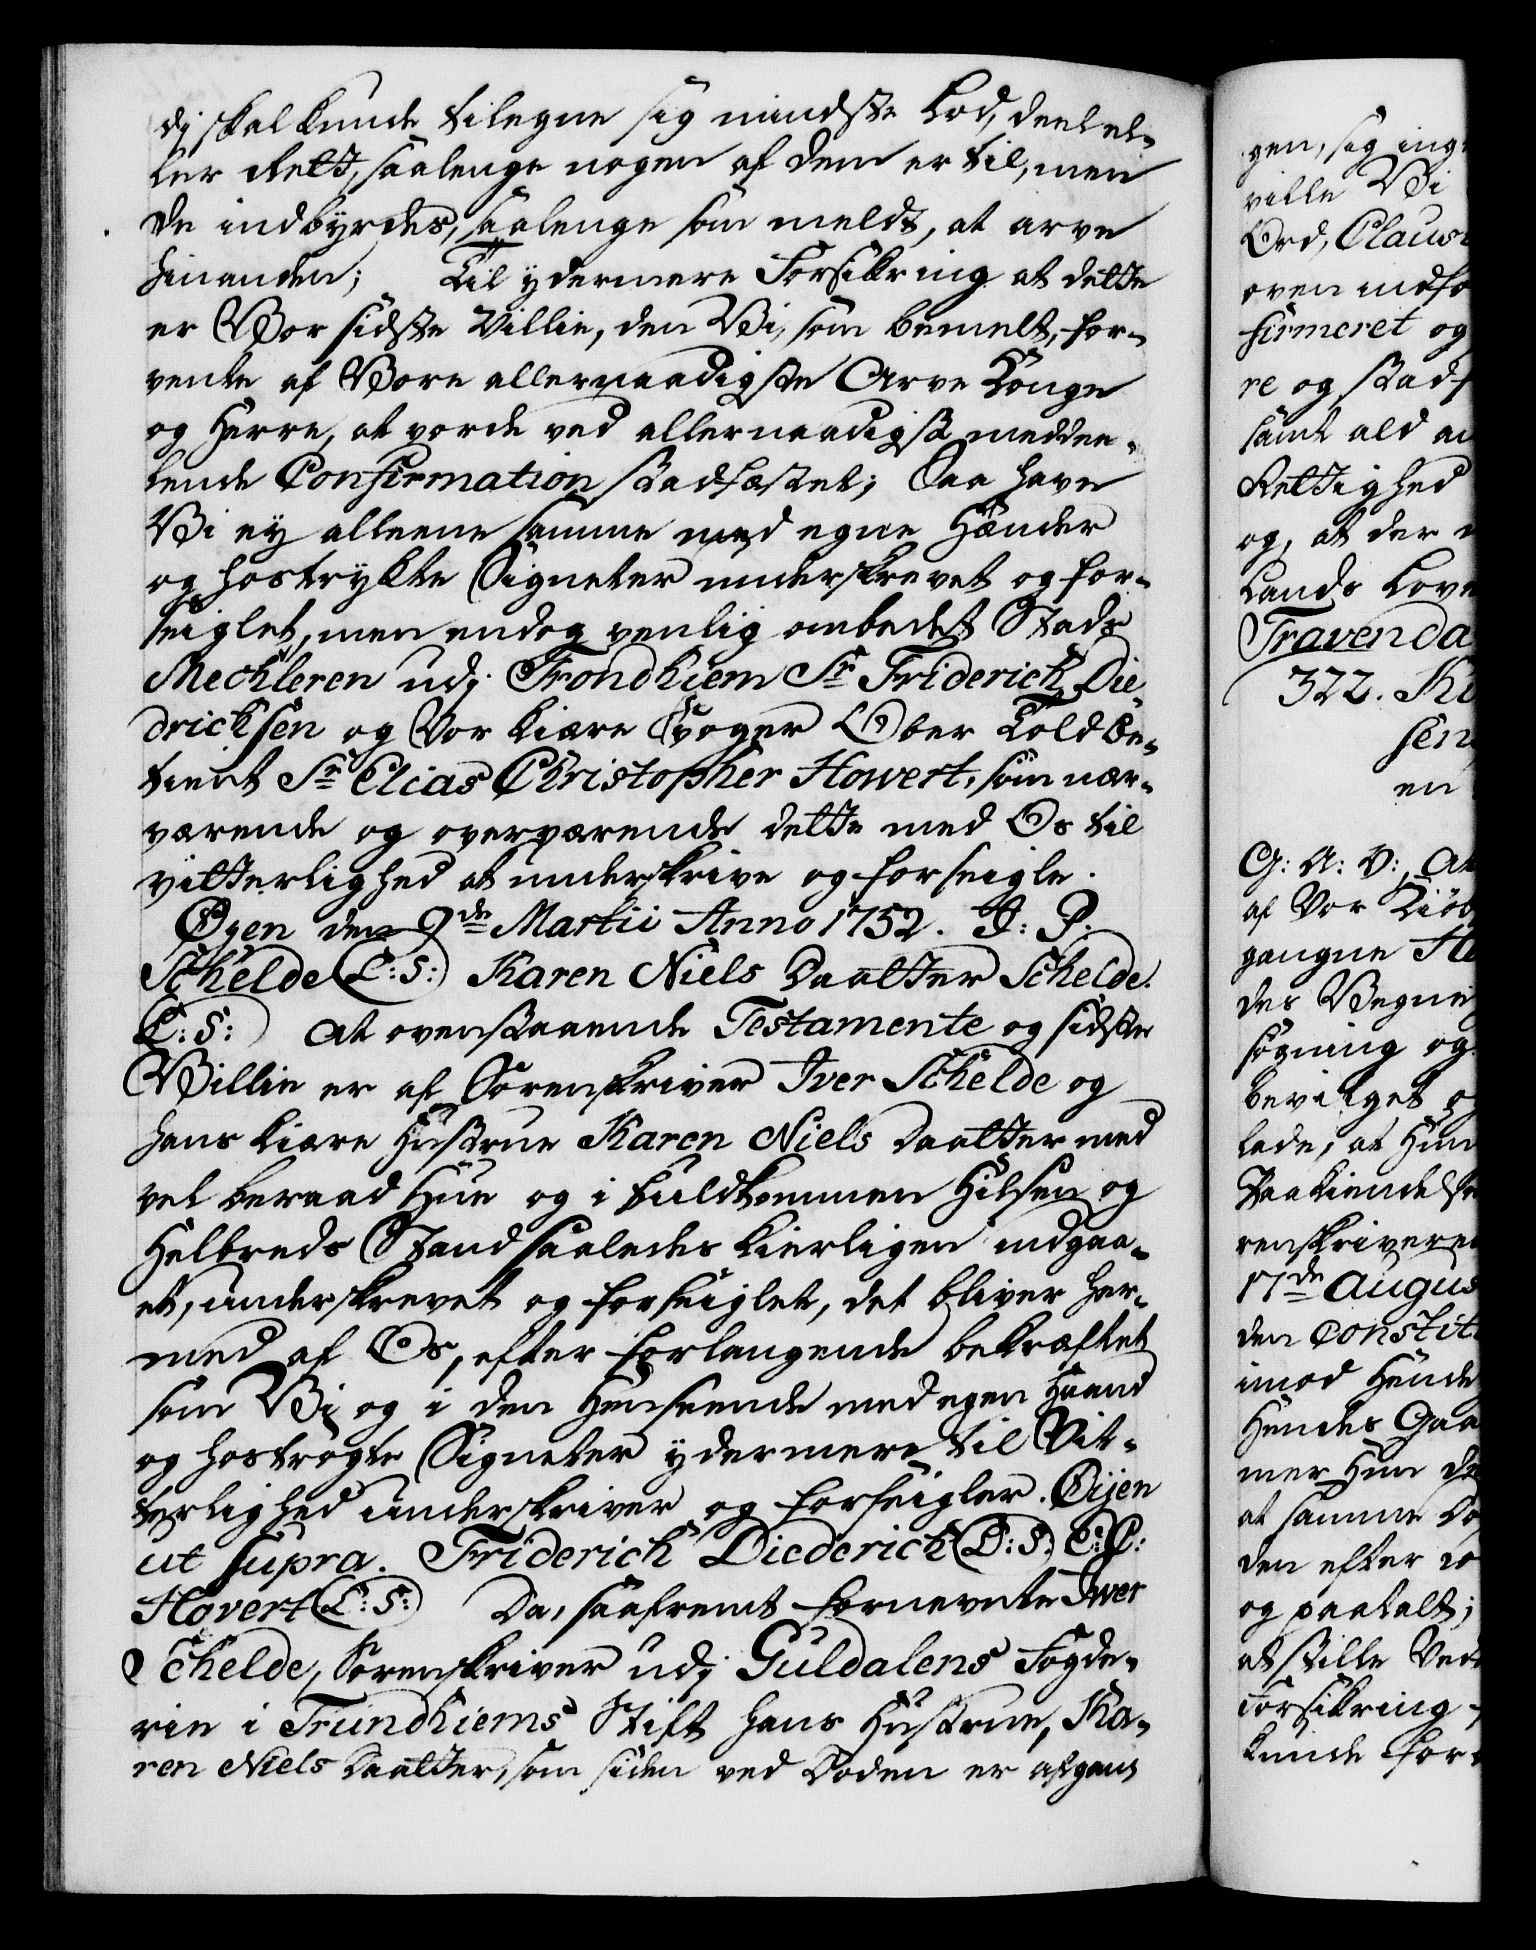 dj skal kunde tilegne sig mindste Lod, deel el-
ler Rett, saalenge nogen af dem er til, men
de indbyrdes, saalenge som meldt, at arve
hinanden; Til ydermere Forsikring at dette
er Vor sidste Villie, den Vi, som bemelt, for-
vente af Vore allernaadigste Arve Konge
og Herre, at vorde ved allernaadigst meddee-
lende Confirmation stadfæstet; Saa have
Vi ey alleene samme med egne Hænder
og hostrykte Signeter underskrevet og for-
seiglet, men endog venlig ombedet Stads
Meckleren udj Trondhiem Sr Friderich Die-
dricksen og Vor kiære Svoger Ober Toldbe-
tient Sr Elias Christopher Howert, som nær-
værende og overværende dette med Os til
vitterlighed at underskrive og forseigle.
Øyen den 9de Martii Anno 1752. J: P:
Schelde (L:S:) Karen Niels Daatter Schelde.
(L:S:) At ovenstaaende Testamente og sidste
Villie er af Sorenskriver Iver Schelde og
hans kiære Hustrue Karen Niels Daatter med
vel beraad Hue og i fuldkommen Hilsen og
Helbreds Stand saaledes kierligen indgaa-
et, underskrevet og forseiglet, det bliver her-
med af Os, efter forlangende bekræftet
som Vi og i den Henseende med egen Haand
og hostrygte Signeter ydermere til Vit-
terlighed underskriver og forseigler. Øijen
ut supra. Friderich Diederich (L:S:) E:C:
Hovert (L:S:) Da, saafremt fornevnte Iver
Schelde, Sorenskriver udj Guldalens Fogde-
rie i Trundhiems Stift hans Hustrue, Ka-
ren Niels Daatter, som siden ved Døden er afgaaet
gen, sig ing
ville Vi
Ord, Claus
oven indfø
firmeret og
re og stadf
samt ald an
Rettighed
og, at der
Lands Lov
Travenda
322. K
sen
en
G: A: V:, At
af Vor Kiøb
gangne
des Vegne
søgning og
bevilget o
lade, at Hun
Paakiendelse
renskriveren
17de Augus
den Constit
imod Hende
Hendes Gaa
mer Hun
at samme
den efter
og paatalt;
at stille
Forsikring
kunde for